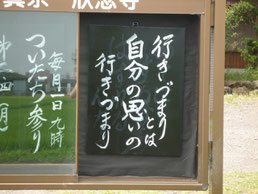 真宗 欣念寺
行きづまりとは
自分の思いの
行きづまり
毎月一日九時
ついたち参り